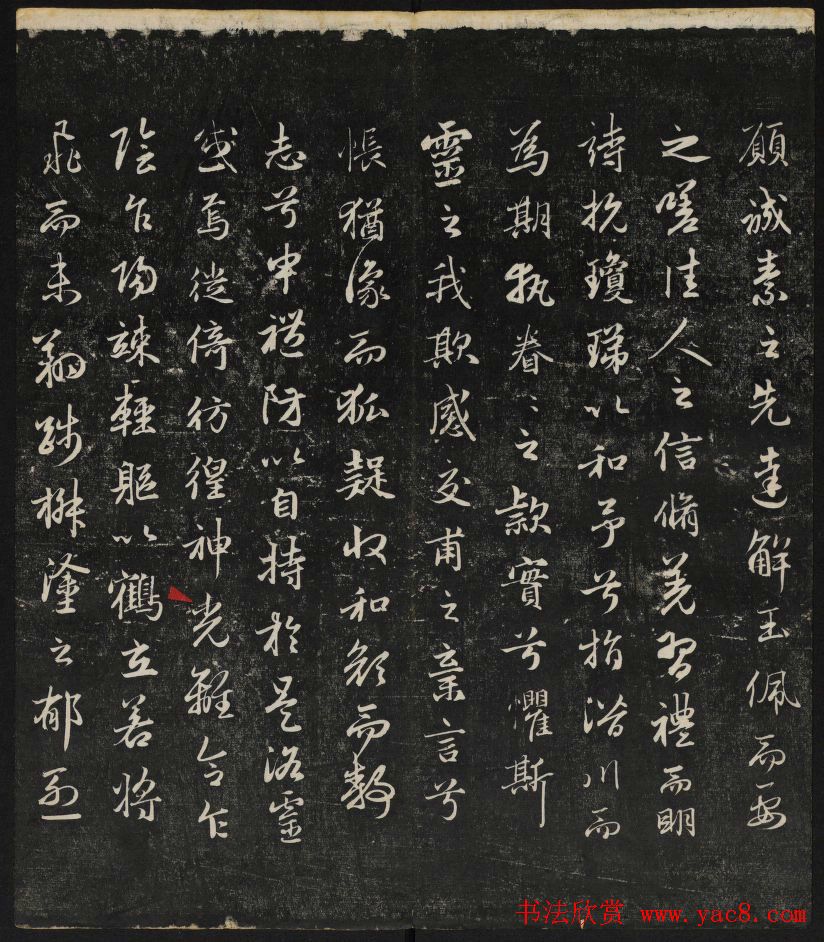 願誠素之先達解玉佩而要
之嗟佳人之信脩羌習禮而明
詩抗瓊珶以和予兮指潛川而
為期執眷〻之款實兮懼斯
靈之我欺感交甫之棄言兮
悵猶豫而狐疑收和顏而靜
志兮申禮防以自持於是洛靈
感焉徙倚彷徨神光離合乍
陰乍陽竦輕軀以鶴立若將
飛而未翔踐椒塗之郁烈
书法欣赏 www.yac8.com